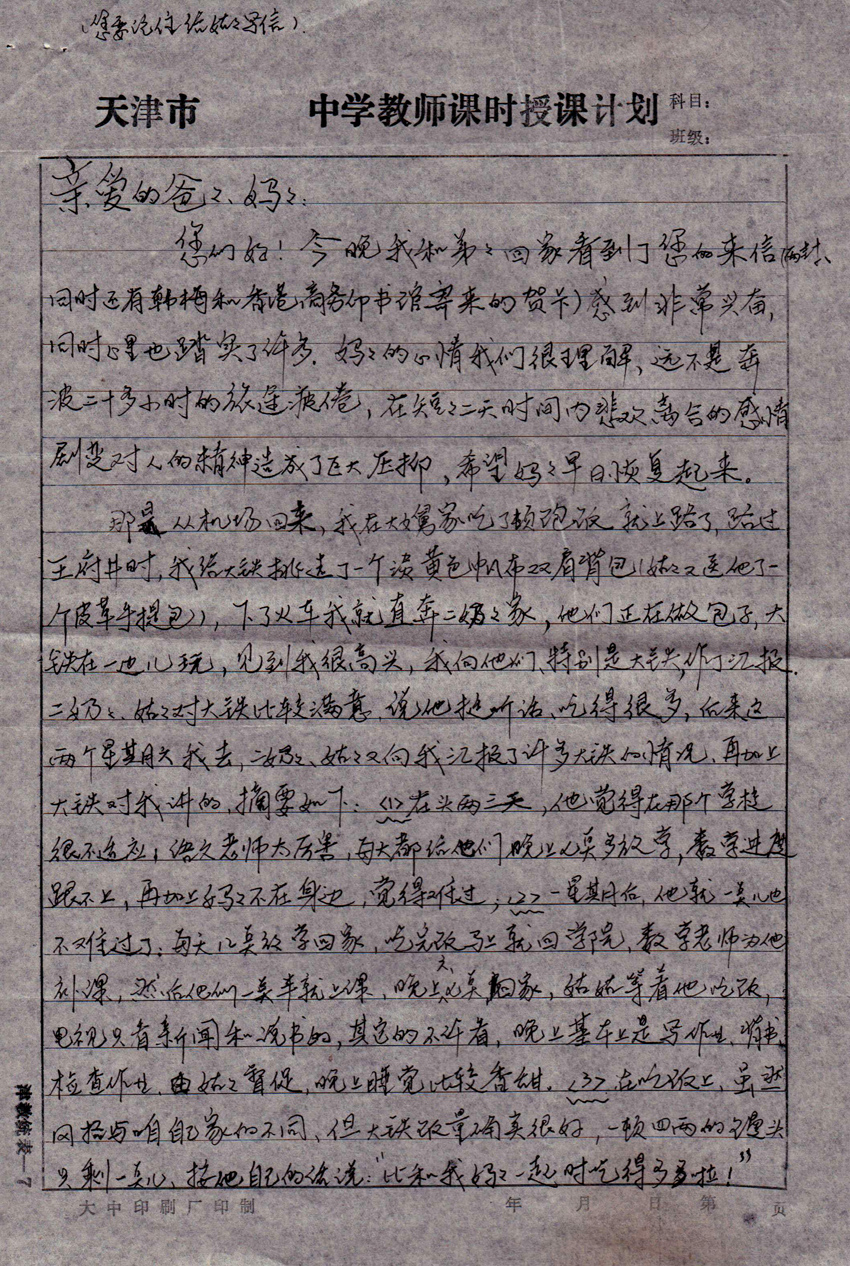 (您要记住给姑々写信).
天津市 中学教师课时授课计划 科目:
班级:
亲爱的爸々、妈々:
您们好!今晚我和弟々回家看到了您的来信(两封、
同时还有韩梅和香港商务印书馆寄来的贺卡)感到非常兴奋,
同时心里也踏实了许多.妈々的心情我们很理解、远不是奔
波二十多小时的旅途疲倦,在短々二天时间内悲欢离合的感情
剧变对人的精神造成了巨大压抑,希望妈々早日恢复起来。
那是从机场回来,我在大舅家吃了顿晚饭就上路了,路过
王府井时,我给大铁挑选了一个淡黄色帆布双肩背包(姑々又送他了一
个皮革手提包),下了火车我就直奔二奶々家,他们正在做包子,大
铁在一边儿玩,见到我很高兴,我向他们、特别是大铁,作了汇报.
二奶々、姑々对大铁比较满意,说他挺听话、吃得很多,后来这
两个星期六我去,二奶々、姑々又向我汇报了许多大铁的情况、再加上
大铁对我讲的,摘要如下:〈1〉在头两三天,他觉得在那个学校
很不适应;语文老师太厉害,每天都给他们晚上八点多放学,数学进度
跟不上,再加上妈々不在身边,觉得难过;〈2〉一星期后,他就一点儿也
不难过了;每天几点放学回家,吃完饭马上就回学院,数学老师为他
补课,然后他们一点半就上课,晚上六点回家,姑姑等着他吃饭,
电视只看新闻和说书的,其它的不许看,晚上基本上是写作业、背书、
检查作业,由姑々督促,晚上睡觉比较香甜.〈3〉在吃饭上,虽然
风格与咱自己家的不同、但大铁饭量确实很好,一顿四两的馒头
只剩一点儿、按他自己的话说:“比和我妈々一起时吃得多多啦!”
津教统表—7
大中印刷厂印制 年 月 日 第 页